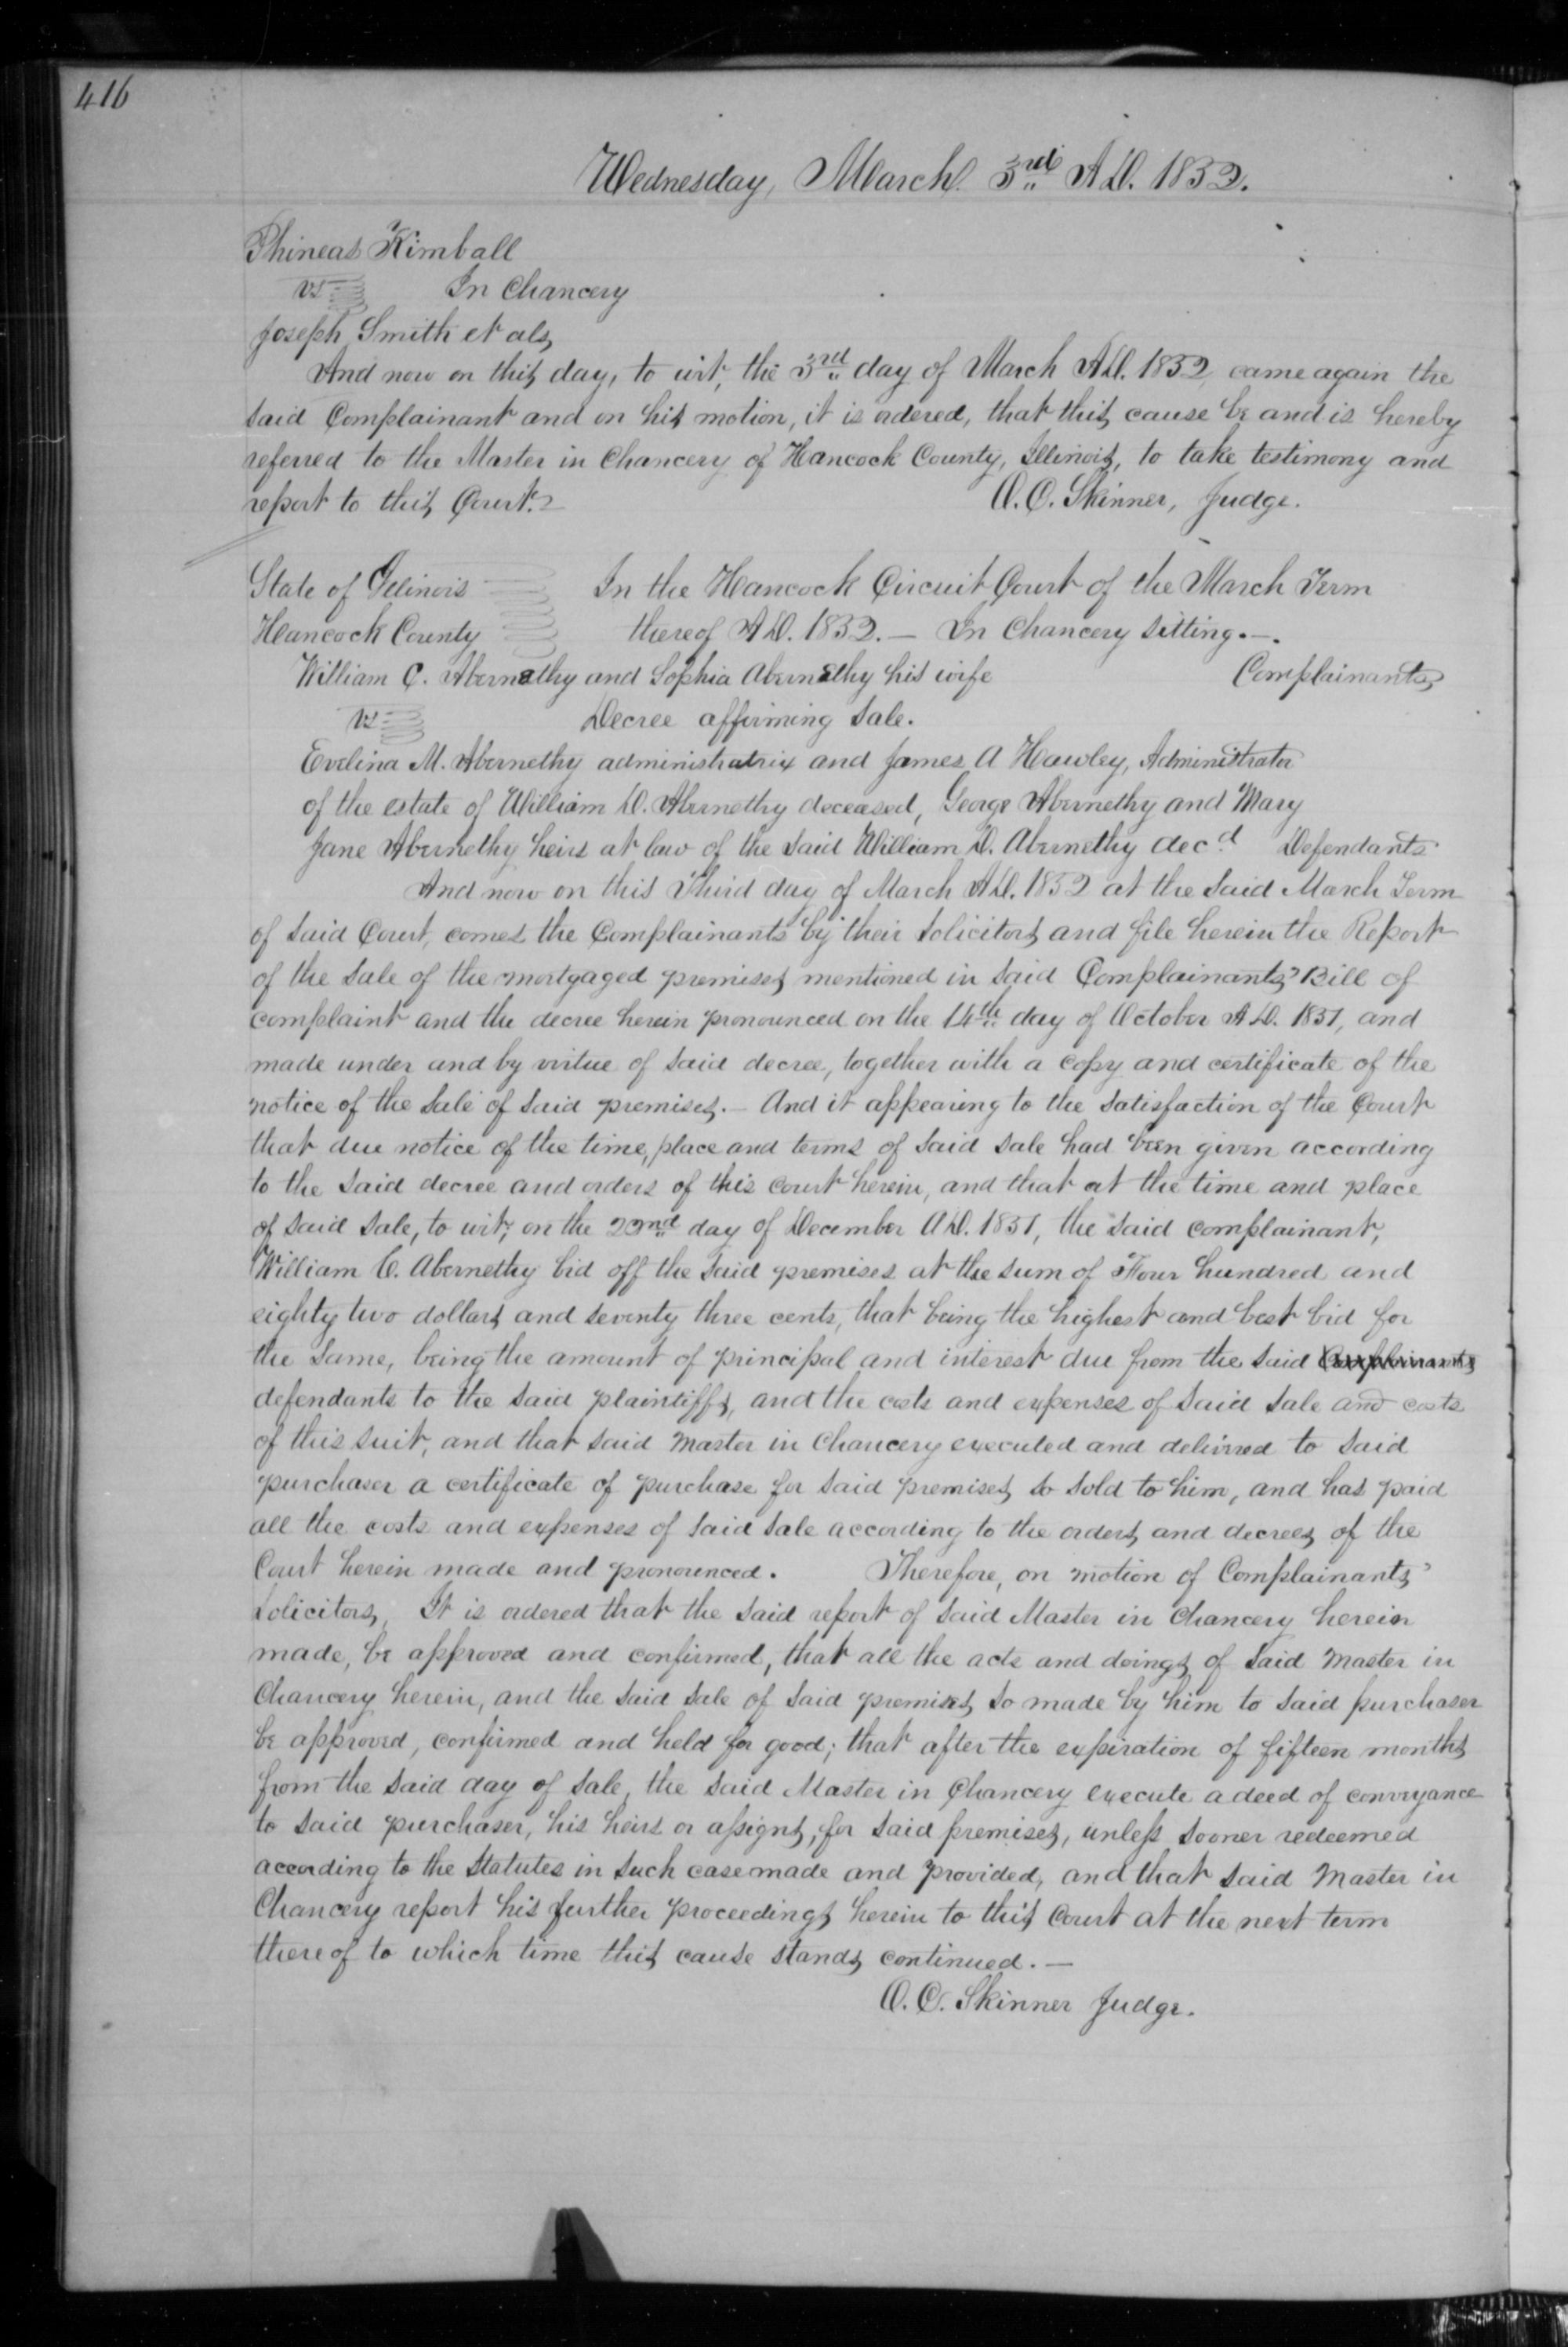 416
Wednesday, March 3rd A.D. 1852.
Phineas Kimball
vs In Chancery
Joseph Smith et als,
And now on this day, to wit, the 3rd day of March A.D. 1852, came again the
said Complainant and on his motion, it is ordered, that this cause be and is hereby
referred to the Master in Chancery of Hancock County, Illinois, to take testimony and
report to this Court.
O. C. Skinner, Judge.
State of Illinois In the Hancock Circuit Court of the March Term
Hancock County thereof A.D. 1852. — In Chancery sitting. —.
William C. Abernethy and Sophia Abernethy his wife Complainants
vs Decree affirming Sale.
Evelina M. Abernethy administratrix and James A Hawley, Administrator
of the estate of William D. Abernethy deceased, George Abernethy and Mary
Jane Abernethy heirs at law of the said William D. Abernethy decd Defendants
And now on this Third day of March A.D. 1852 at the said March Term
of said Court, comes the Complainants by their Solicitors and file herein the Report
of the sale of the mortgaged premises mentioned in said Complainants' Bill of
complaint and the decree herein pronounced on the 14th day of October A.D. 1851, and
made under and by virtue of said decree, together with a copy and certificate of the
notice of the sale of said premises. — And it appearing to the satisfaction of the Court
that due notice of the time, place and terms of said sale had been given according
to the said decree and orders of this court herein, and that at the time and place
of said sale, to wit, on the 22nd day of December A.D. 1851, the said complainant,
William C. Abernethy bid off the said premises at the sum of Four hundred and
eighty two dollars and seventy three cents, that being the highest and best bid for
the same, being the amount of principal and interest due from the said Complainants
defendants to the said plaintiffs, and the costs and expenses of said sale and costs
of this suit, and that said Master in Chancery executed and delivred to said
purchaser a certificate of purchase for said premises so sold to him, and has paid
all the costs and expenses of said sale according to the orders and decrees of the
Court herein made and pronounced. Therefore, on motion of Complainants'
Solicitors, It is ordered that the said report of said Master in Chancery herein
made, be approved and confirmed, that all the acts and doings of said Master in
Chancery herein, and the said sale of said premises so made by him to said purchaser
be approved, confirmed and held for good; that after the expiration of fifteen months
from the said day of sale, the said Master in Chancery execute a deed of conveyance
to said purchaser, his heirs or assigns, for said premises, unless sooner redeemed
according to the Statutes in such case made and provided, and that said Master in
Chancery report his further proceedings herein to this Court at the next term
thereof to which time this cause stands continued. —
O. C. Skinner Judge.